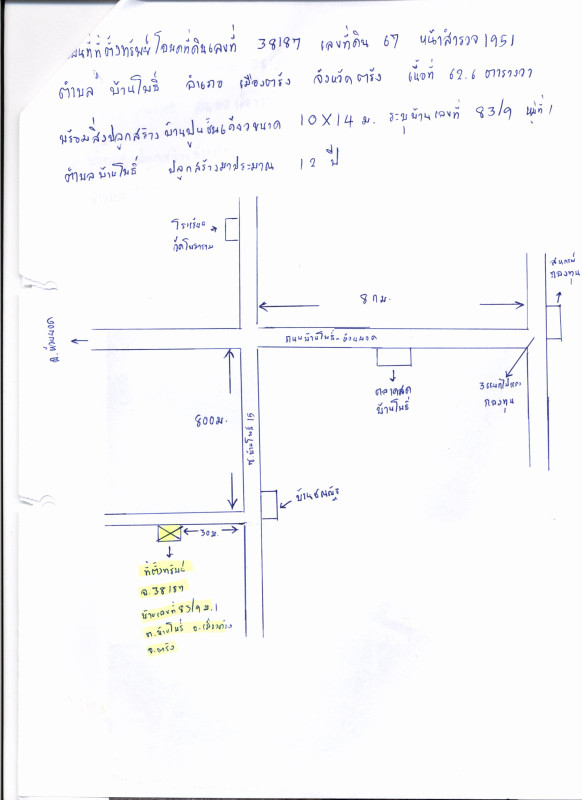 แผนที่ที่ตั้งทรัพย์ โฉนดที่ดินเลขที่ 38187 เลขที่ดิน 67 หน้าสำรวจ 1951
ตำบล บ้านโพธิ์ อำเภอ เมืองตรัง จังหวัดตรัง เนื้อที่ 62.6 ตารางวา
พร้อมสิ่งปลูกสร้าง บ้านปูนชั้นเดียวขนาด 10X14 ม. ระบุบ้านเลขที่ 83/9 หมู่ที่ 1
ตำบลบ้านโพธิ์ ปลูกสร้างมาประมาณ 12 ปี
โรงเรียน
วัดโพธาราม
สหกรณ์
คลองขุน
8 กม.
อ.ห้วยยอด
ถนนบ้านโพธิ์-
ตลาดสด
บ้านโพธิ์
3แยก
800 ม.
ซ.บ้านโพธิ์ 15
30 ม.
ที่ตั้งทรัพย์
ฉ.38187
บ้านเลขที่ 83/9 ม.1
ต.บ้านโพธิ์ อ.เมืองตรัง
จ.ตรัง